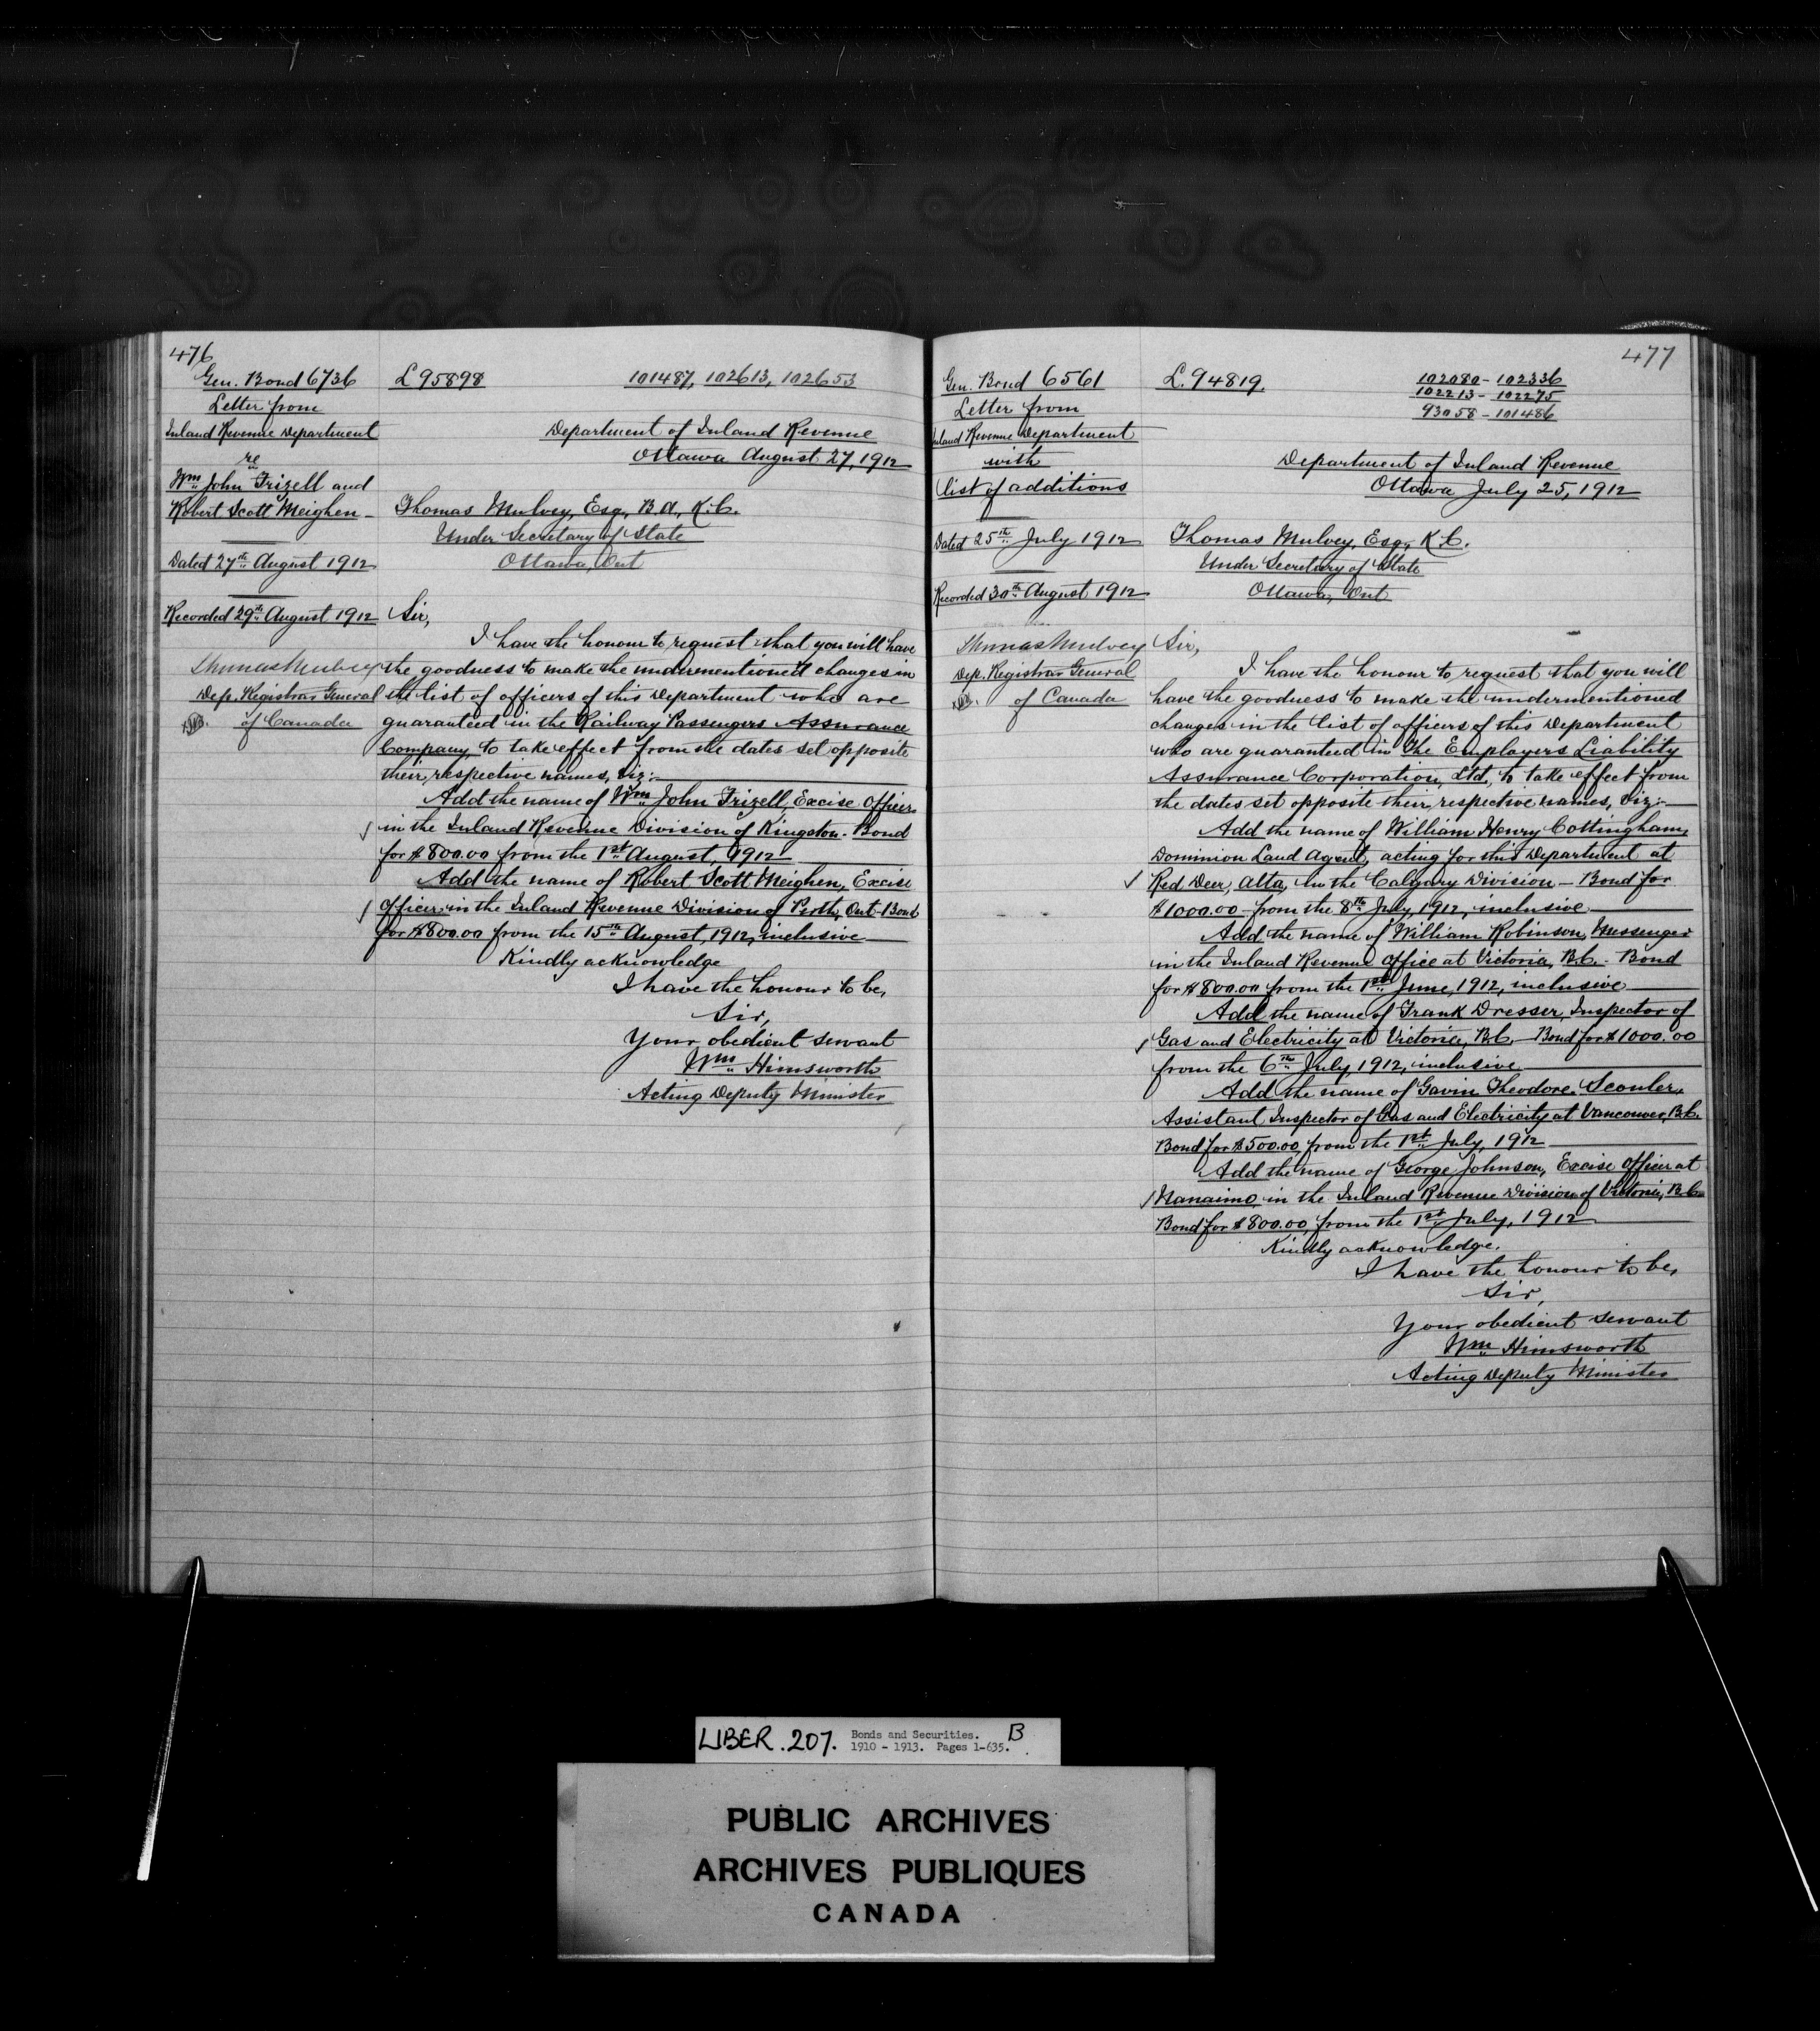 476
Gen. Bond 6736
Letter from
Inland Revenue Department
re
Wm John Frizell and
Robert Scott Meighen -
Dated 27th August 1912
Recorded 29th August 1912
Thomas Mulvey
Dep. Registrar General
of Canada
L 95898
101487, 102613, 102653
Department of Inland Revenue
Ottawa August 27, 1912
Thomas Mulvey, Esq, B.A, K.C.
Under Secretary of State
Ottawa, Ont
Sir,
I have the honour to request that you will have
the goodness to make the undermentioned changes in
the list of officers of this Department who are
guaranteed in the Railway Passengers Assurance
Company, to take effect from the dates set opposite
their respective names, viz:-
Add the name of Wm John Frizell, Excise Officer
in the Inland Revenue Division of Kingston - Bond
for $800.00 from the 1st August, 1912
Add the name of Robert Scott Meighen, Excise
Officer in the Inland Revenue Division of Perth, Ont - Bond
for $800.00 from the 15th August, 1912, inclusive
Kindly acknowledge
I have the honour to be,
Sir,
Your obedient servant
Wm Himsworth
Acting Deputy Minister
477
Gen. Bond 6561
Letter from
Inland Revenue Department
with
list of additions
Dated 25th July 1912
Recorded 30th August 1912
Thomas Mulvey
Dep. Registrar General
of Canada
L. 94819.
102080 - 102336
102213 - 102275
93058 - 101486
Department of Inland Revenue
Ottawa July 25, 1912
Thomas Mulvey, Esq, K.C.
Under Secretary of State
Ottawa, Ont
Sir,
I have the honour to request that you will
have the goodness to make the undermentioned
changes in the list of officers of this Department
who are guaranteed in The Employers Liability
Assurance Corporation, Ltd, to take effect from
the dates set opposite their respective names, viz:-
Add the name of William Henry Cottingham,
Dominion Land Agent, acting for this Department at
Red Deer, Alta, in the Calgary Division - Bond for
$1000.00 - from the 8th July, 1912, inclusive
Add the name of William Robinson, Messenger
in the Inland Revenue Office at Victoria, B.C. - Bond
for $800.00 from the 1st June, 1912, inclusive
Add the name of Frank Dresser, Inspector of
Gas and Electricity at Victoria, B.C. - Bond for $1000.00
from the 6th July, 1912, inclusive
Add the name of Gavin Theodore Scouler,
Assistant Inspector of Gas and Electricity at Vancouver, B.C.
Bond for $500.00, from the 1st July, 1912
Add the name of George Johnson, Excise Officer at
Nanaimo, in the Inland Revenue Division of Victoria, B.C.
Bond for $800.00, from the 1st July, 1912
Kindly acknowledge.
I have the honour to be,
Sir,
Your obedient servant
Wm Himsworth
Acting Deputy Minister
LIBER. 207. Bonds and Securities. B
1910 - 1913. Pages 1-635.
PUBLIC ARCHIVES
ARCHIVES PUBLIQUES
CANADA